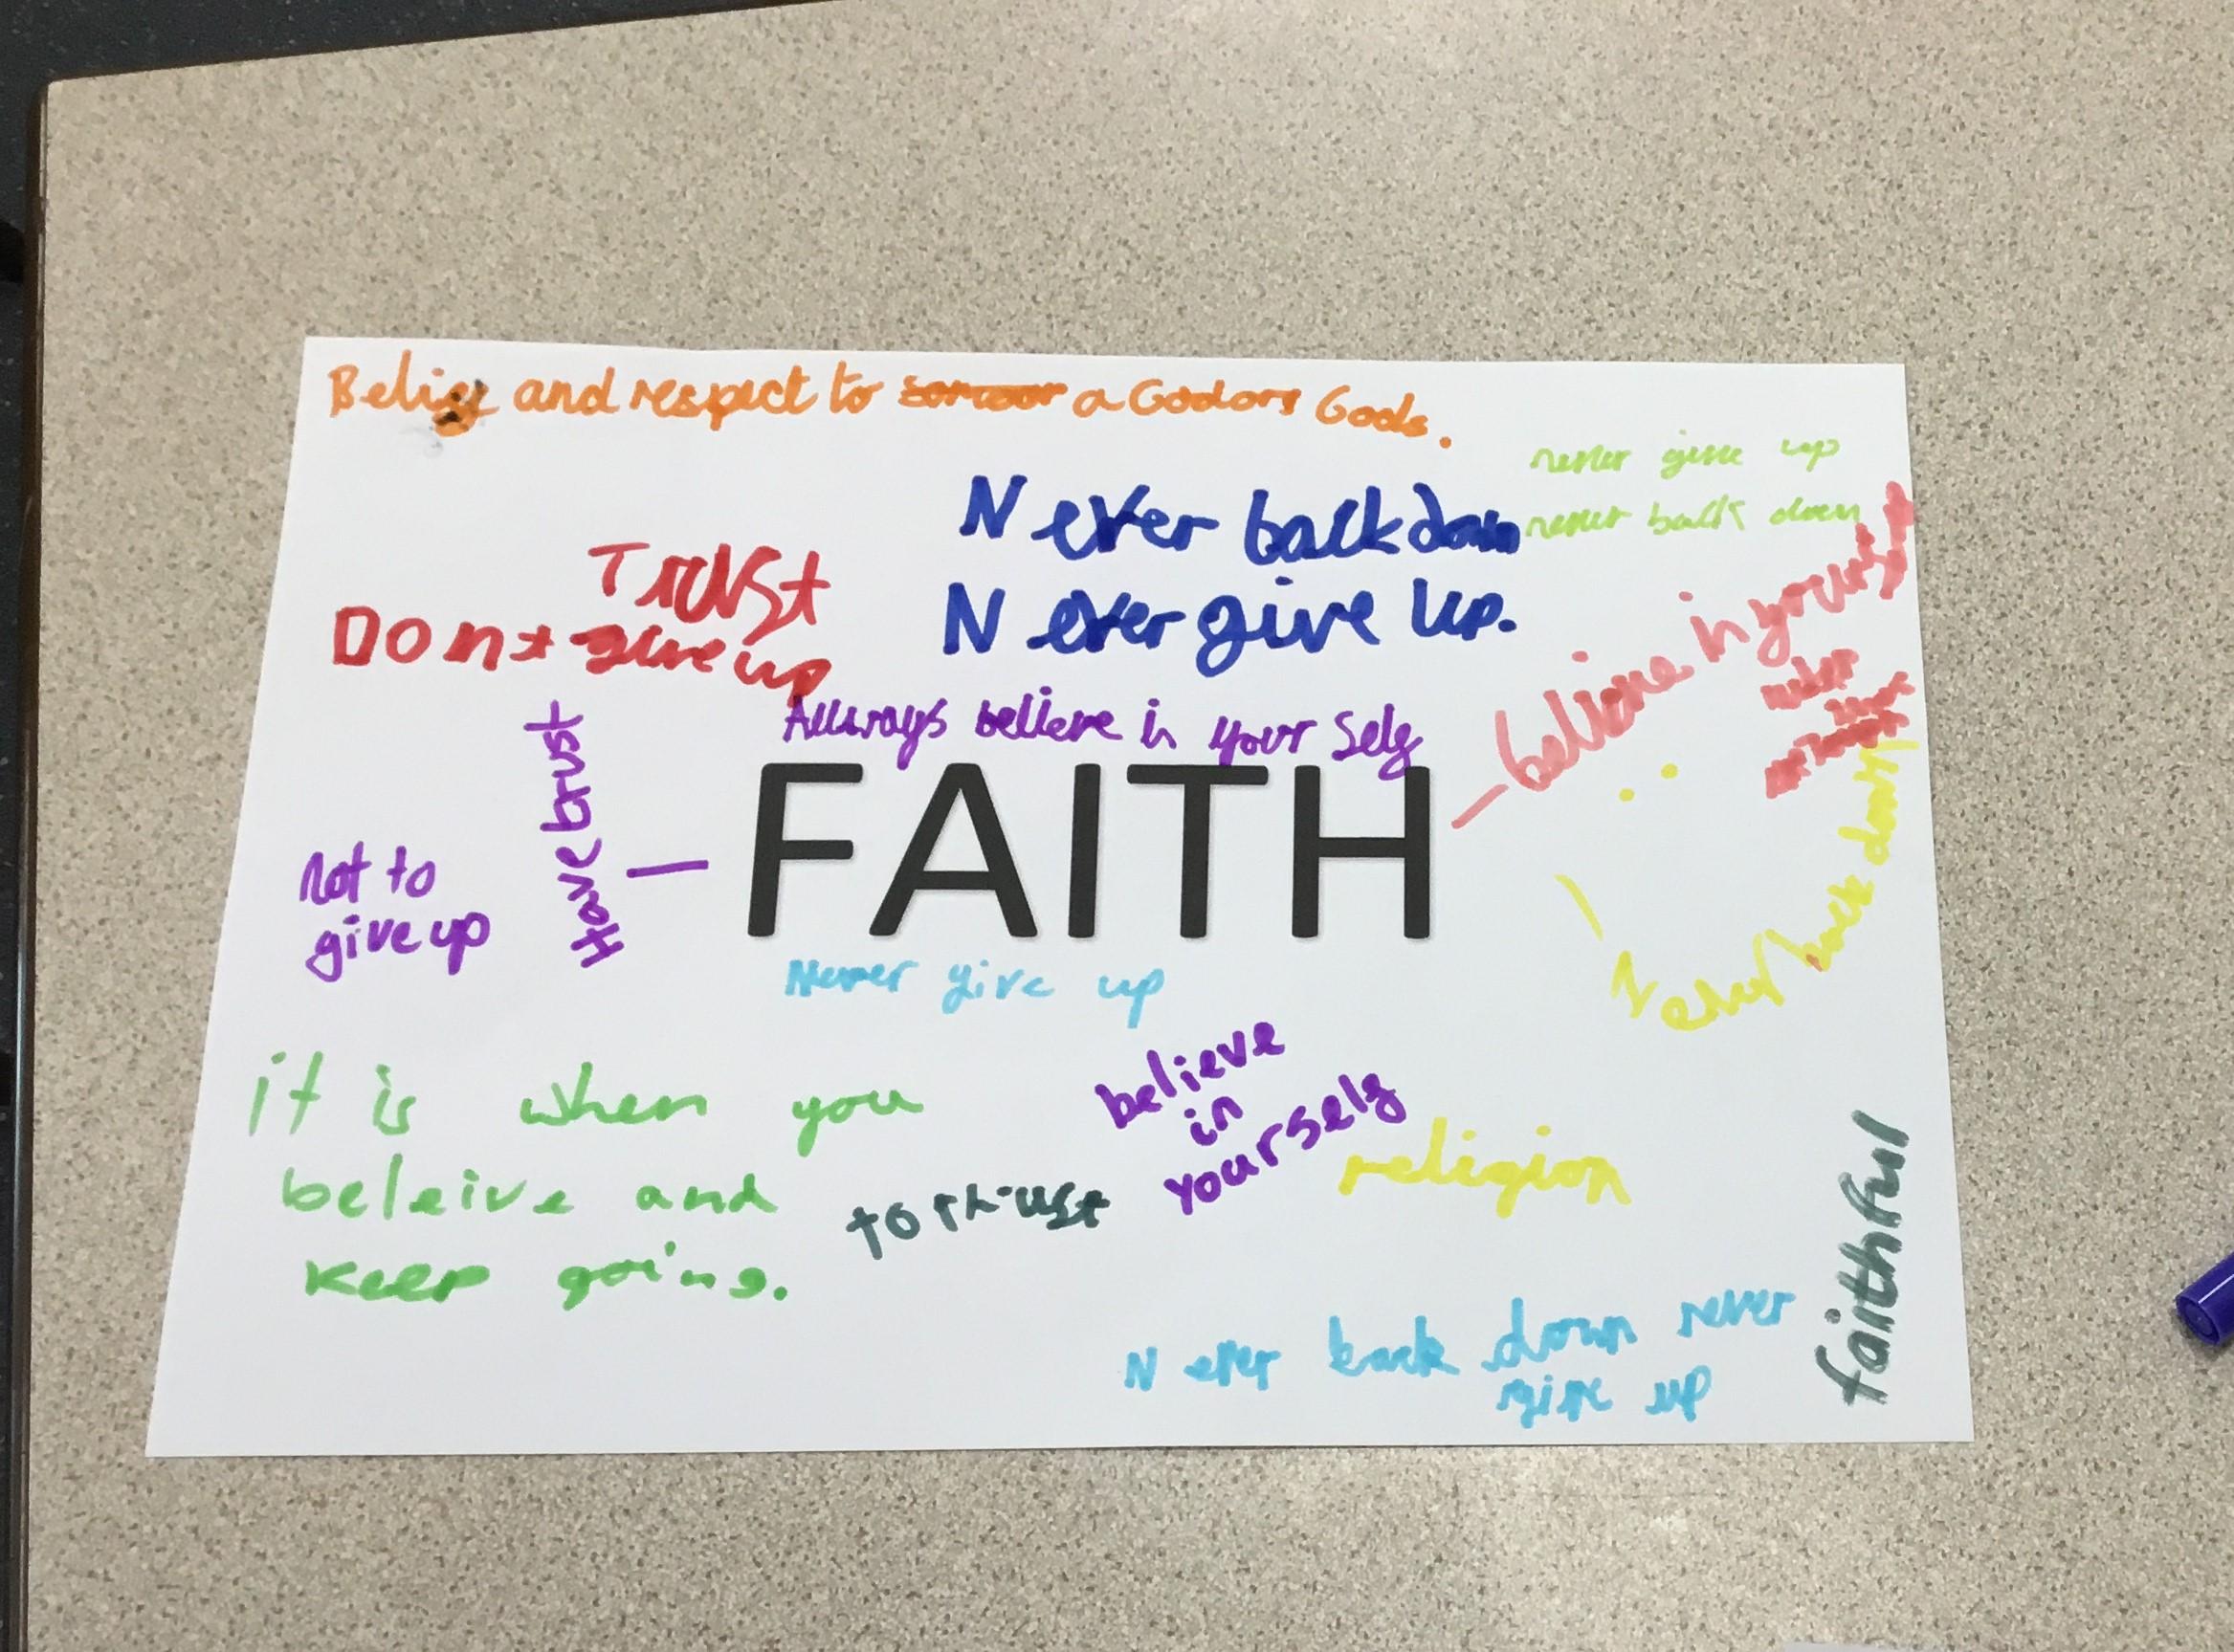 and respect to a God or Gods.
never give up
never back down
Never back down
Never give up.
Trust
Dont give up
believe in yourself
Allways believe in your self
Have trust
FAITH
not to
give up
Never back down
Never give up
it is when you
beleive and
keep going.
believe
in
yourself
to trust
religion
faithful
Never back down never
give up